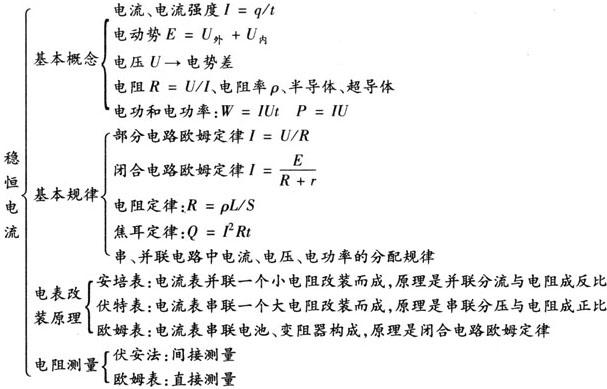 稳恒电流
基本概念
电流、电流强度 I = q/t
电动势 E = U外 + U内
电压 U → 电势差
电阻 R = U/I、电阻率 ρ、半导体、超导体
电功和电功率:W = IUt P = IU
基本规律
部分电路欧姆定律 I = U/R
闭合电路欧姆定律 I = E/(R + r)
电阻定律:R = ρL/S
焦耳定律:Q = I²Rt
串、并联电路中电流、电压、电功率的分配规律
电表改
装原理
安培表:电流表并联一个小电阻改装而成,原理是并联分流与电阻成反比
伏特表:电流表串联一个大电阻改装而成,原理是串联分压与电阻成正比
欧姆表:电流表串联电池、变阻器构成,原理是闭合电路欧姆定律
电阻测量
伏安法:间接测量
欧姆表:直接测量